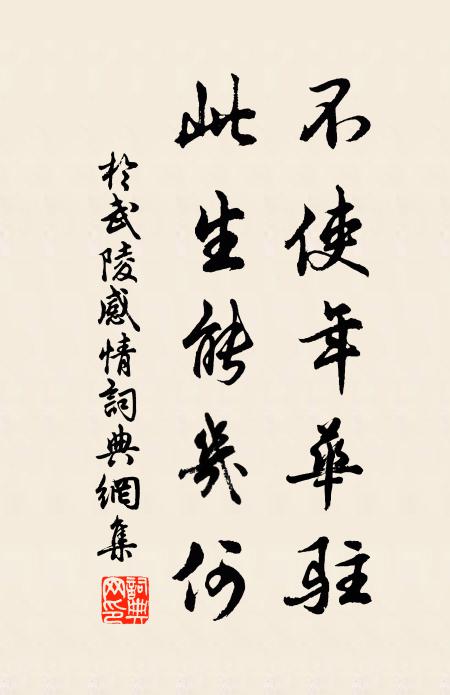 不使年華駐
此生能幾何
於武陵感情詞典網集
詞典網印